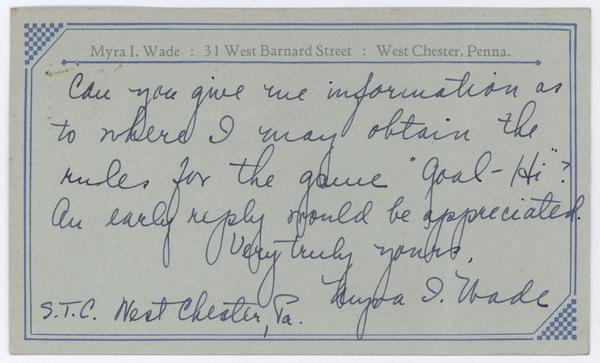 Myra I. Wade : 31 West Barnard Street : West Chester, Penna.
Can you give me information as
to where I may obtain the
rules for the game "Goal-Hi"?
An early reply would be appreciated.
Very truly yours,
Myra I. Wade
S.T.C. West Chester, Pa.